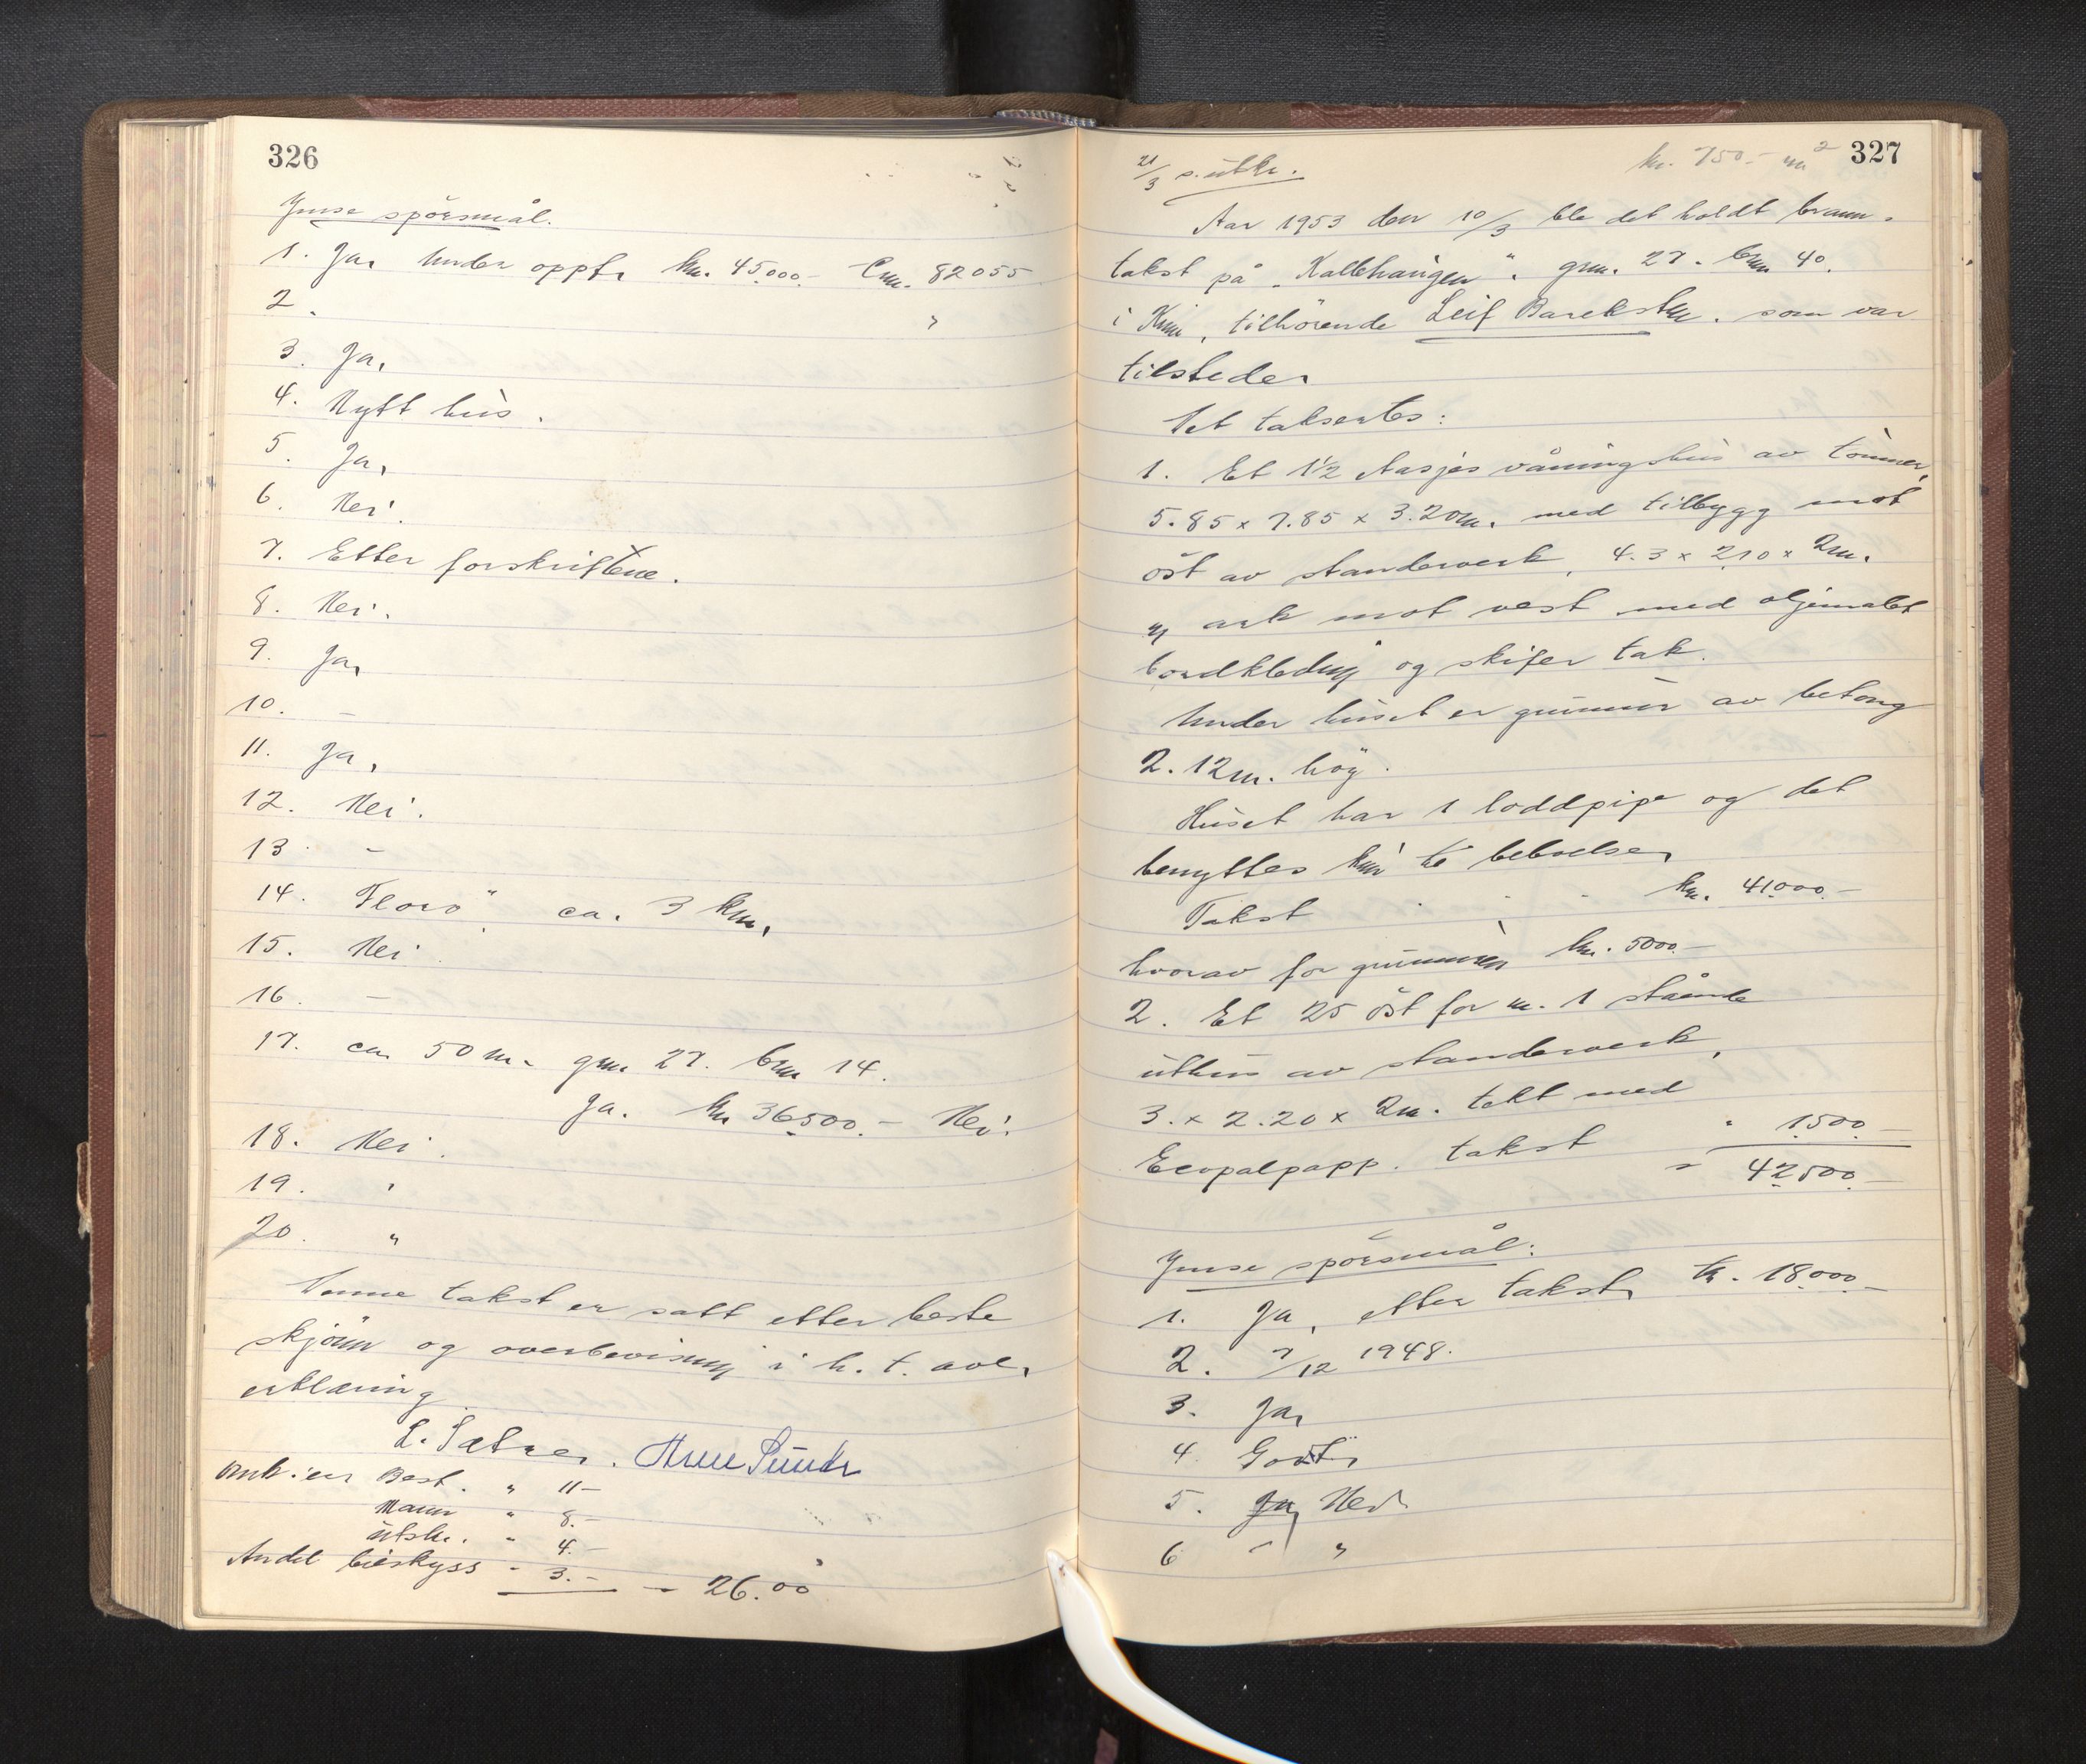 326
Ymse spörsmål.
1. Ja, Under oppf. kr. 45000.- Cnr. 82055
2. "
3. Ja,
4. Nytt hus.
5. Ja,
6. Nei.
7. Etter forskriftene.
8. Nei.
9. Ja,
10. -
11. Ja,
12. Nei.
13. -
14. Florö. ca. 3 km,
15. Nei.
16. -
17. ca. 50 m. gnr. 27. bnr. 14.
Ja. kr 36500.- Nei.
18. Nei.
19. "
20. "
Denne takst er satt etter beste
skjönn og overbevisning i h. t. avl.
erklæring
L. Sætre. Arne
Best. " 11-
Mann " 8.-
utskr. " 4.-
Andel bilskyss " 3.- - 26.00
327
21/3 s. utkr.
kr. 750.- m2
Aar 1953 den 10/3 ble det holdt brann-
takst på "Kallehaugen". gnr. 27. bnr. 40.
i Kinn, tilhörende Leif Bareksten. som var
tilstede.
Det taksertes:
1. Et 1½ etasjes våningshus av tömmer,
5.85 x 7.85 x 3.20m. med tilbygg mot
öst av standerverk, 4.3 x 2.10 x 2m.
og ark mot vest med oljemalet
bordkledning og skifer tak.
Under huset er grunnmur av betong
2.12m. höy.
Huset har 1 loddpipe og det
benyttes kun til beboelse.
Takst - - - kr. 41000.-
hvorav for grunnmuren kr. 5000.-
2. Et 25 öst for nr. 1 stående
uthus av standerverk,
3. x 2.20 x 2m. tekt med
Ecopalpapp. takst " 1500.-
" 42500.-
Ymse spörsmål:
1. Ja, etter takst, kr. 18000.-
2. 7/12 1948.
3. Ja,
4. Godt,
5. Ja, Nei.
6 - "